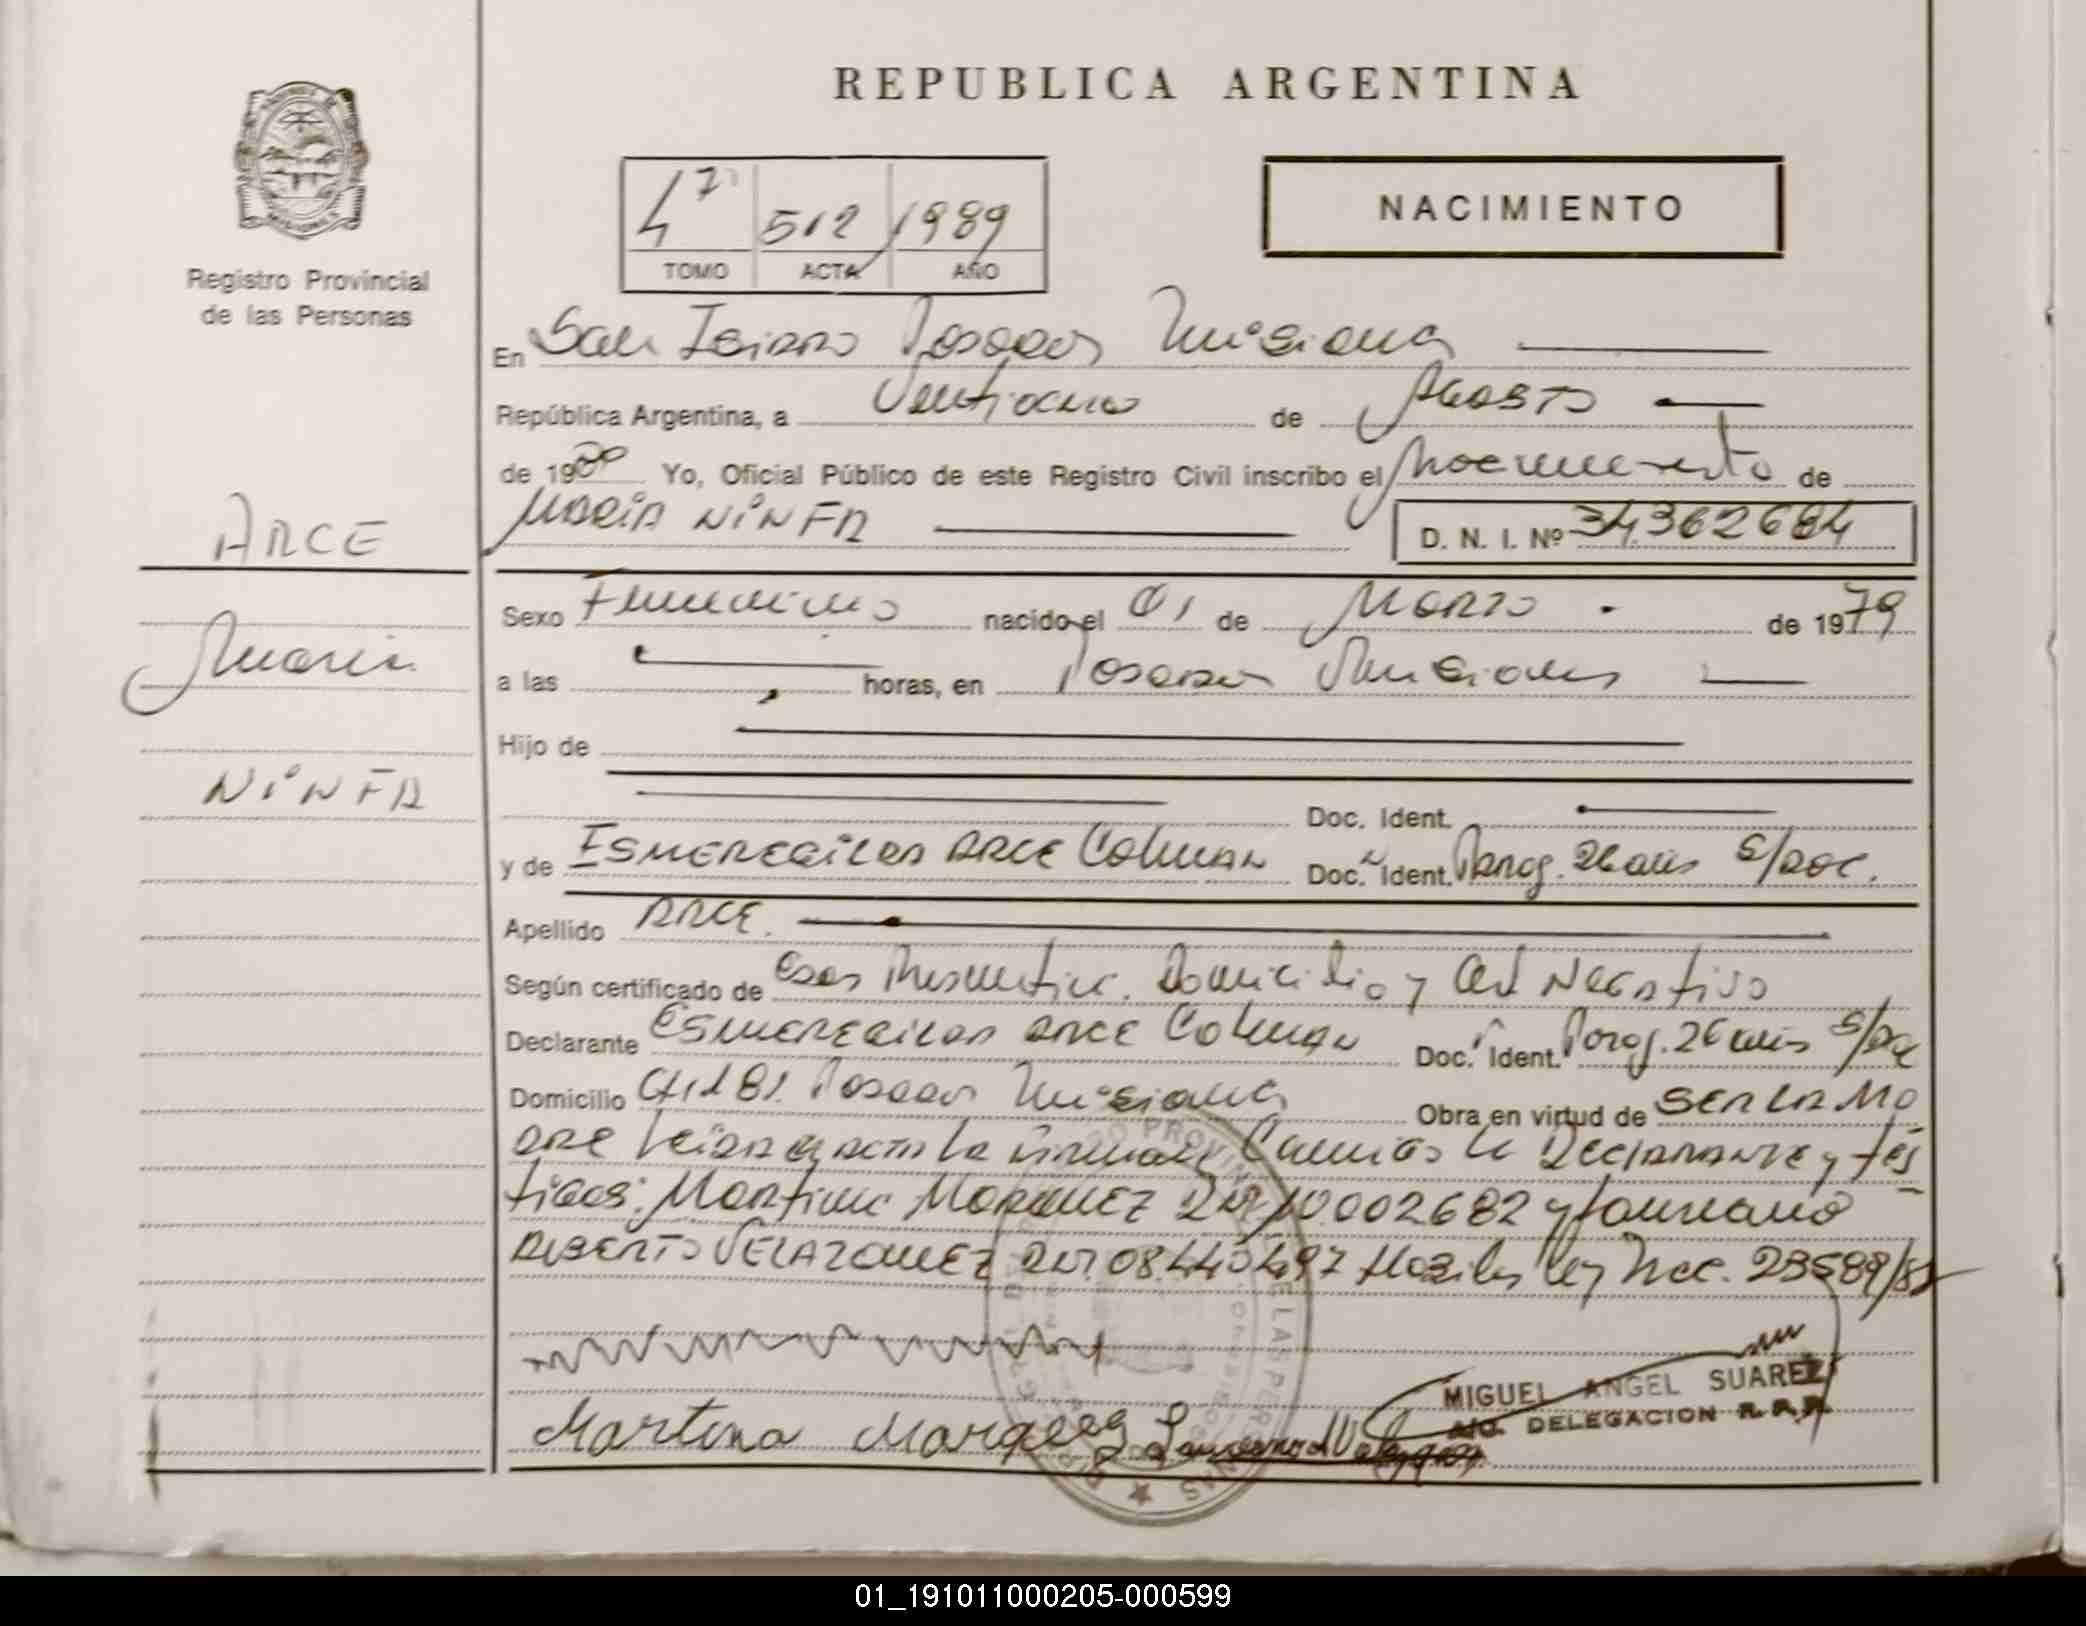 REPUBLICA ARGENTINA
NACIMIENTO
4 7 512 1989
TOMO ACTA AÑO
Registro Provincial
de las Personas
En San Isidro Posadas Misiones
República Argentina, a Ventiocho de Agosto
de 1989 Yo, Oficial Público de este Registro Civil inscribo el Nacimiento de
MARIA NINFA D. N. I. Nº 34.362684
ARCE
Maria
NINFA
Sexo Femenino nacido el 01 de Marzo de 1979
a las horas, en Posadas Misiones
Hijo de
Doc. Ident.
y de ESMEREGILDA ARCE Colman Doc. Ident. Parag. 26 años S/DOC.
Apellido ARCE.
Según certificado de Domicilio y Negativo
Declarante ESMEREGILDA ARCE Colman Doc. Ident. Parag. 26 años S/Doc
Domicilio Posadas Misiones Obra en virtud de SER LA MA
DRE Leida el acta la firman Conmigo la Declarante y tes
tigos: Martina MARQUEZ DNI 10.002682 y Laureano
ALBERTO VELAZQUEZ DNI 08.440497 Ley Nac. 23589/88
Martina Marquez Laureano A Velazquez
MIGUEL ANGEL SUAREZ
A/C. DELEGACION R. P. P.
01_191011000205-000599